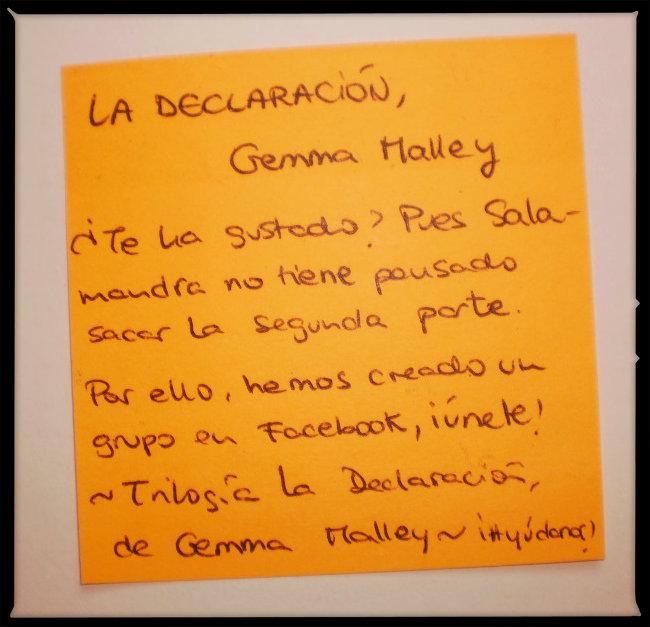 LA DECLARACIÓN,
Gemma Malley
¿Te ha gustado? Pues Sala-
mandra no tiene pensado
sacar la segunda parte.
Por ello, hemos creado un
grupo en Facebook, ¡únete!
~ Trilogía La Declaración,
de Gemma Malley ~ ¡Ayúdanos!